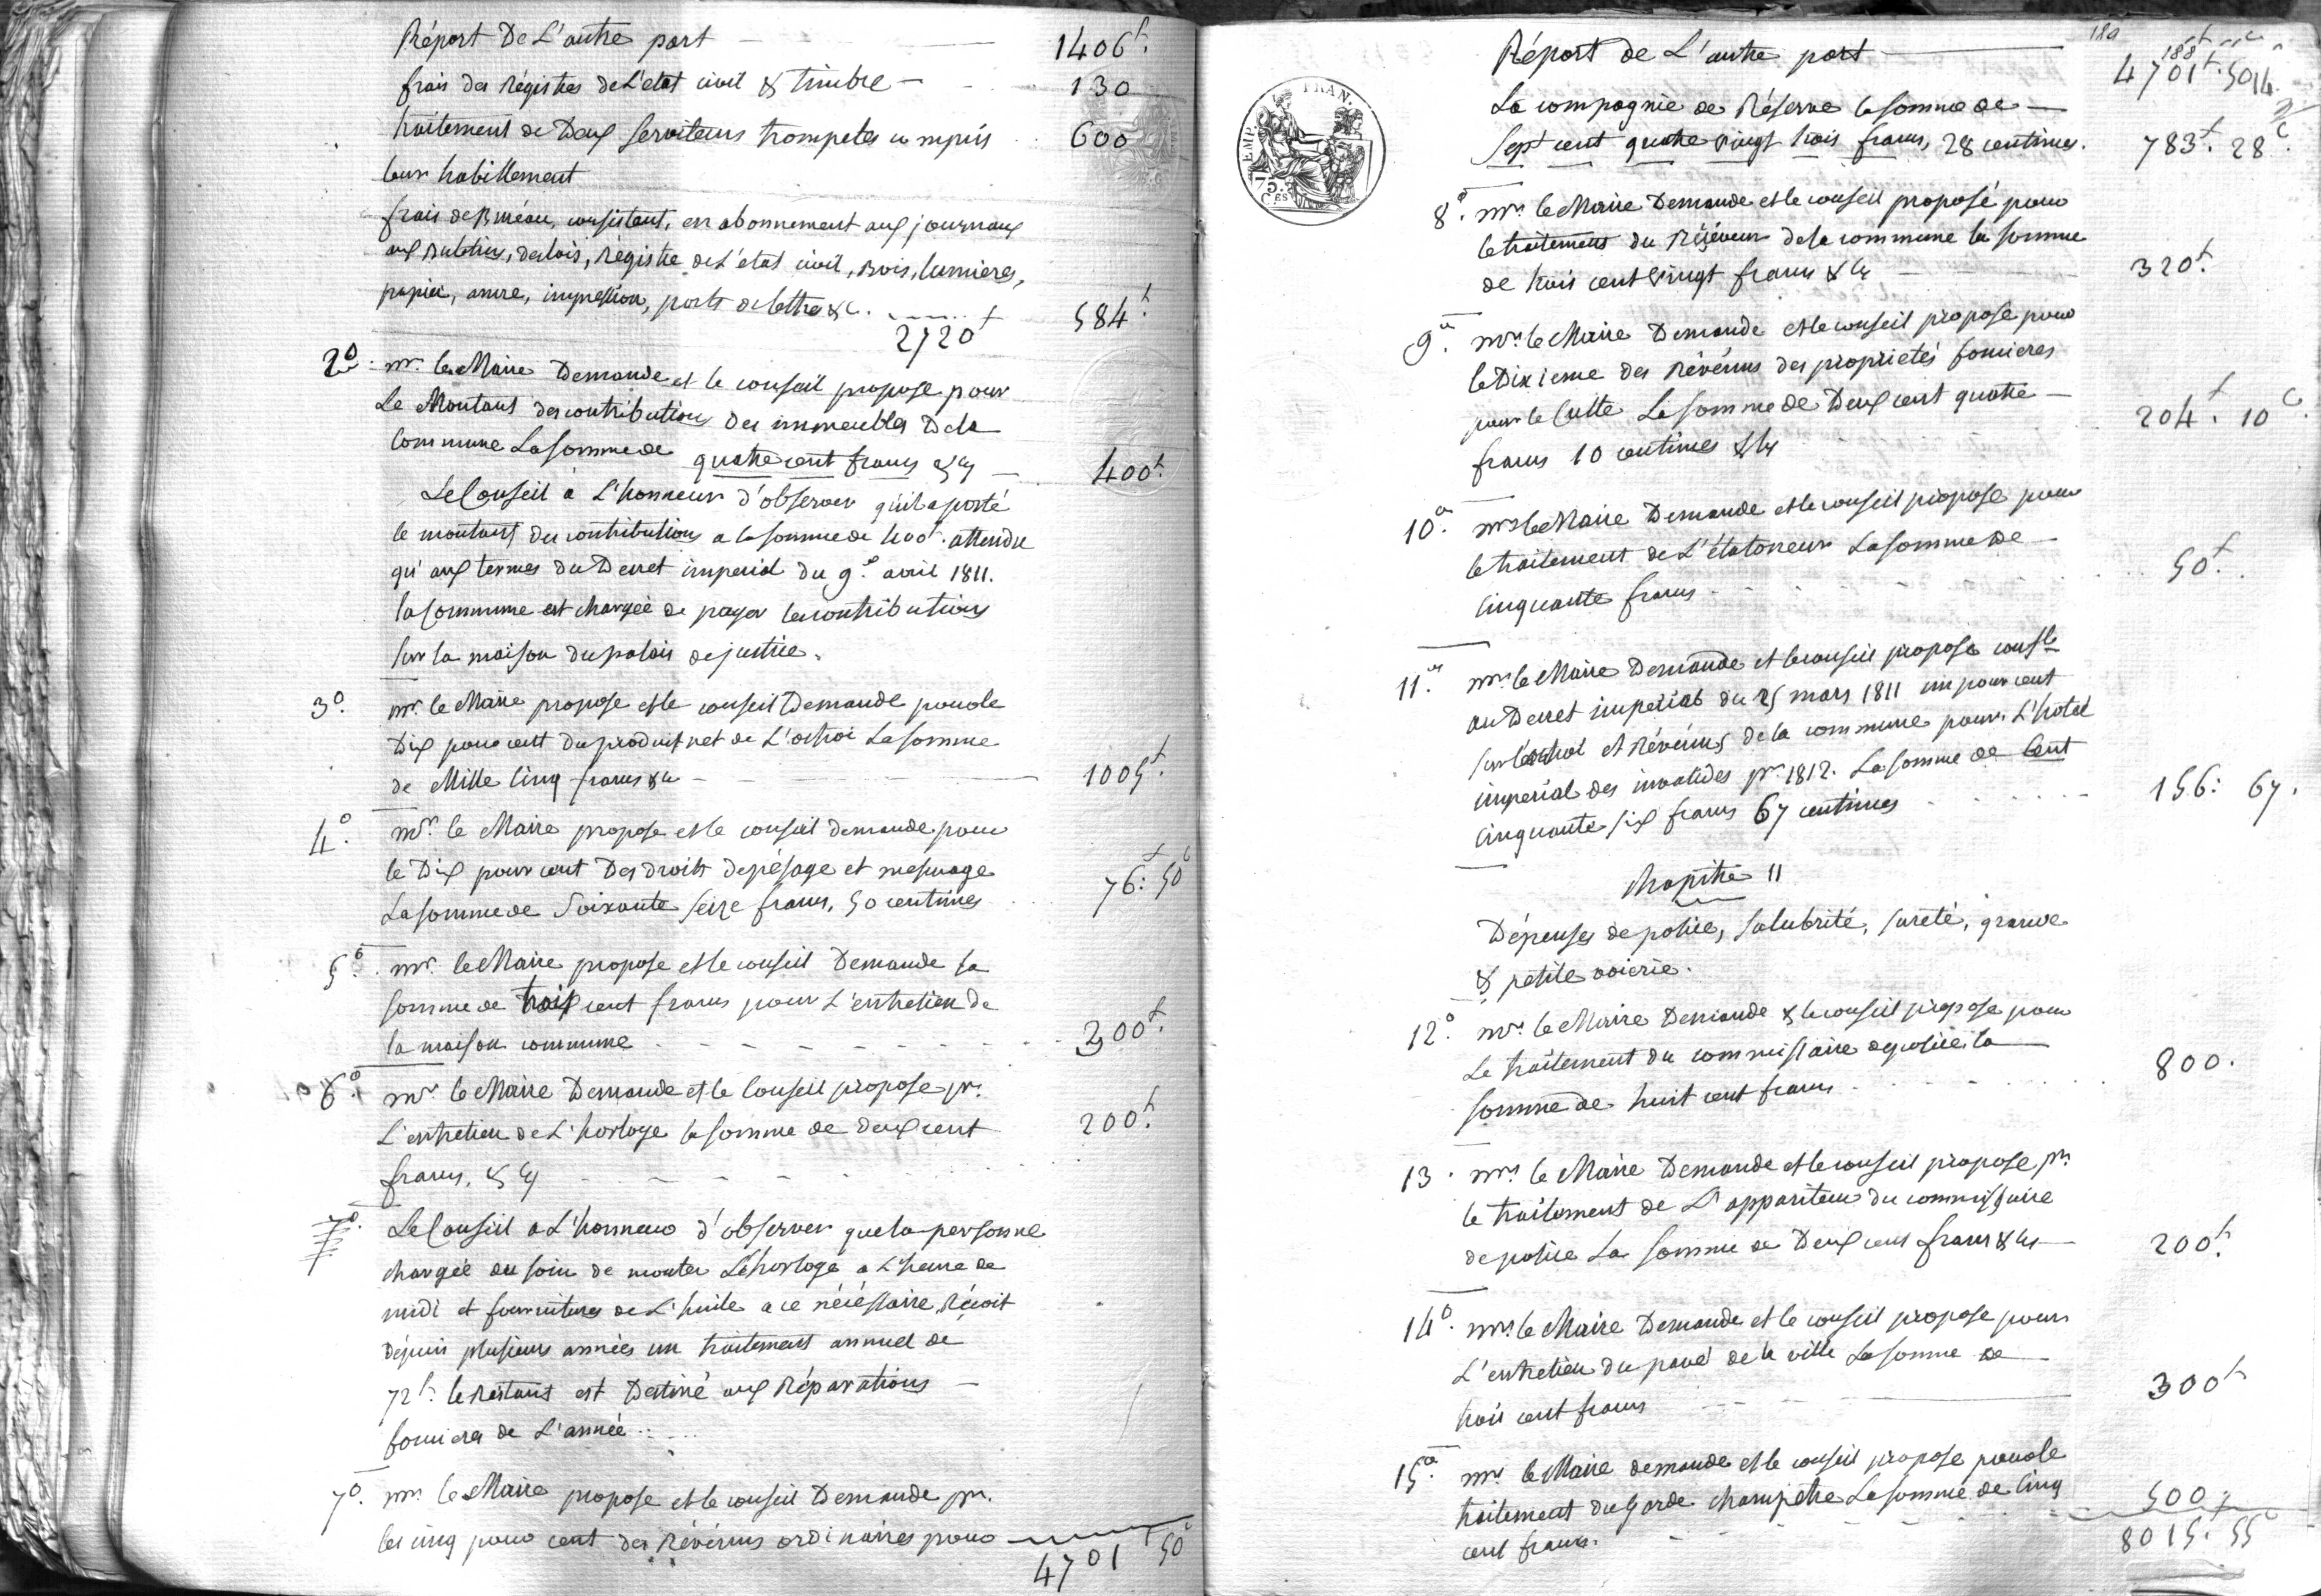 Réport De L'autre part 1406f.
frais des Régistres de L'etat civil & timbre 130
traitement de Deux serviteurs trompetes compris 600
leur habillement
frais de Bureau, consistant, en abonnement aux journaux
aux Bulletins, des lois, Régistre de L'état civil, Bois, lumieres,
papier, ancre, impression, ports de lettre &c. 584f.
2720f
2o. mr. le Maire Demande et le conseil propose pour
Le Montant des contributions des immeubles De la
Commune La somme de quatre cent francs & cy 400f.
Le Conseil a L'honneur d'observer qu'il a porté
le montant des contributions a la somme de 400f. attendu
qu'aux termes du Decret imperial du 9e. avril 1811.
la Commune est chargée de payer les contributions
sur la maison du palais de justice.
3o. mr. le Maire propose et le conseil Demande pour le
Dix pour cent du produit net de L'octroi La somme
de Mille Cinq francs & cy 1005f.
4o. mr. le Maire propose et le conseil demande pour
le Dix pour cent Des droits de pésage et mesurage
La somme de Soixante seize francs, 50 centimes 76f. 50c
5o. mr. le Maire propose et le conseil Demande la
somme de trois cent francs pour L'entretien de
la maison commune 300f.
6o. mr. le Maire Demande et le Conseil propose pr.
L'entretien de L'horloge la somme de deux cent 200f.
francs, & cy
7o. Le Conseil a L'honneur d'observer que la personne
chargée du soin de monter L'horloge a L'heure de
midi et fournitures de L'huile a ce nécéssaire, Réçoit
Dépuis plusieurs années un traitement annuel de
72f. le Restant est Destiné aux Réparations
foncieres de L'année
7o. mr. le Maire propose et le conseil Demande pr.
les cinq pour cent des Révénus ordinaires pour
4701f 50c
180
188
Réport de L'autre part 4701f. 50c
La compagnie de Réserve la somme de
Sept cent quatre vingt trois francs, 28 centimes. 783f. 28c.
FRAN.
TEMP.
75.
C.ES
8o. mr. le Maire Demande et le conseil proposé pour
le traitement du Réçéveur de la commune la somme
de trois cent vingt francs & cy 320f.
9o. mr. le Maire Demande et le conseil propose pour
le Dixieme des Révénus des proprietés foncieres
pour le Culte La somme de Deux cent quatre 204f. 10c.
francs 10 centimes & cy
10o. mr. le Maire Demande et le conseil propose pour
le traitement de L'étatoneur La somme de
Cinquante francs 50f.
11o. mr. le Maire Demande et le conseil propose
au Decret imperial du 25 mars 1811 un pour cent
sur L'octroi et Révénus de la commune pour L'hotel
imperial des invalides pr. 1812. La somme de Cent
cinquante six francs 67 centimes 156: 67.
Chapitre 11
Dépenses de police, salubrité, sureté, grande
& petite voierie.
12o. mr. le Maire Demande & le conseil propose pour
Le traitement du commissaire de police la
somme de huit cent francs 800.
13. mr. le Maire Demande et le conseil propose pr.
le traitement de L'appariteur du commissaire
de police La somme de Deux cent francs & cy 200f.
14o. mr. le Maire Demande et le conseil propose pour
L'entretien du pavé de la ville La somme de
trois cent francs 300f
15o. mr. le Maire demande et le conseil propose pour le
traitement du Garde champetre La somme de Cinq
cent francs. 500f
8015f. 55c